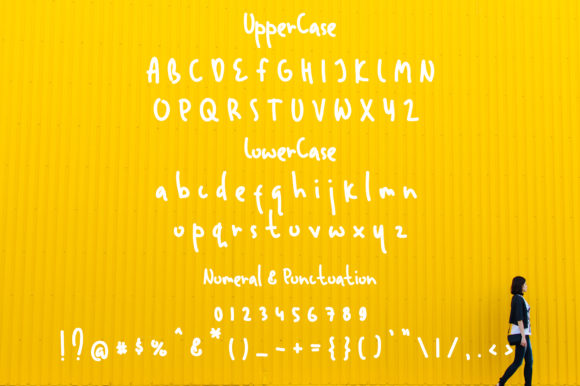 UpperCase
A B C D E f G H I J K L M N
O P Q R S T U V W X Y Z
LowerCase
a b c d e f g h i j k l m n
o p q r s t u v w x y z
Numeral & Punctuation
0 1 2 3 4 5 6 7 8 9
! ? @ # $ % ^ & * ( ) _ - + = { } ( ) ' " \ | / , . < >